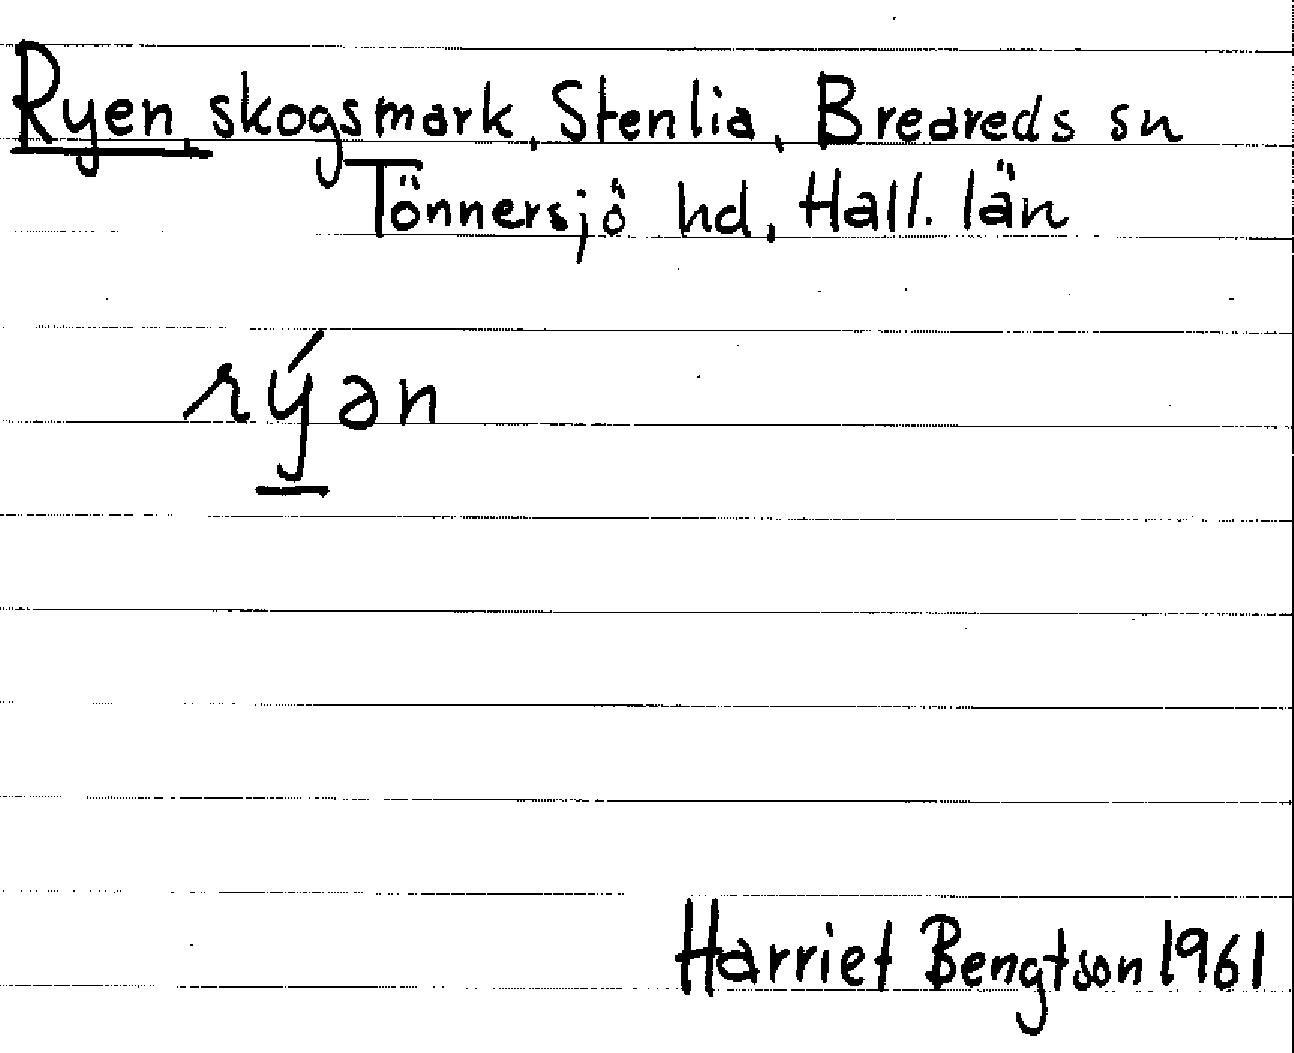 Ryen, skogsmark, Stenlia, Breareds sn
Tönnersjö hd, Hall. län
rýən
Harriet Bengtson 1961